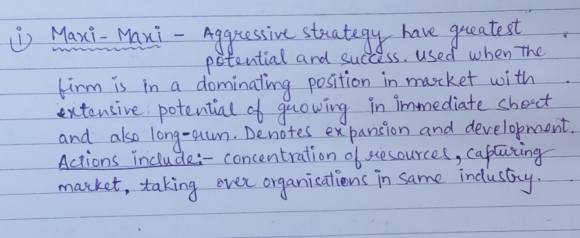 i) Maxi-Maxi - Aggressive strategy have greatest
potential and success. Used when the
firm is in a dominating position in market with
extensive potential of growing in immediate short
and also long-run. Denotes expansion and development.
Actions include:- concentration of resources, capturing
market, taking over organisations in same industry.